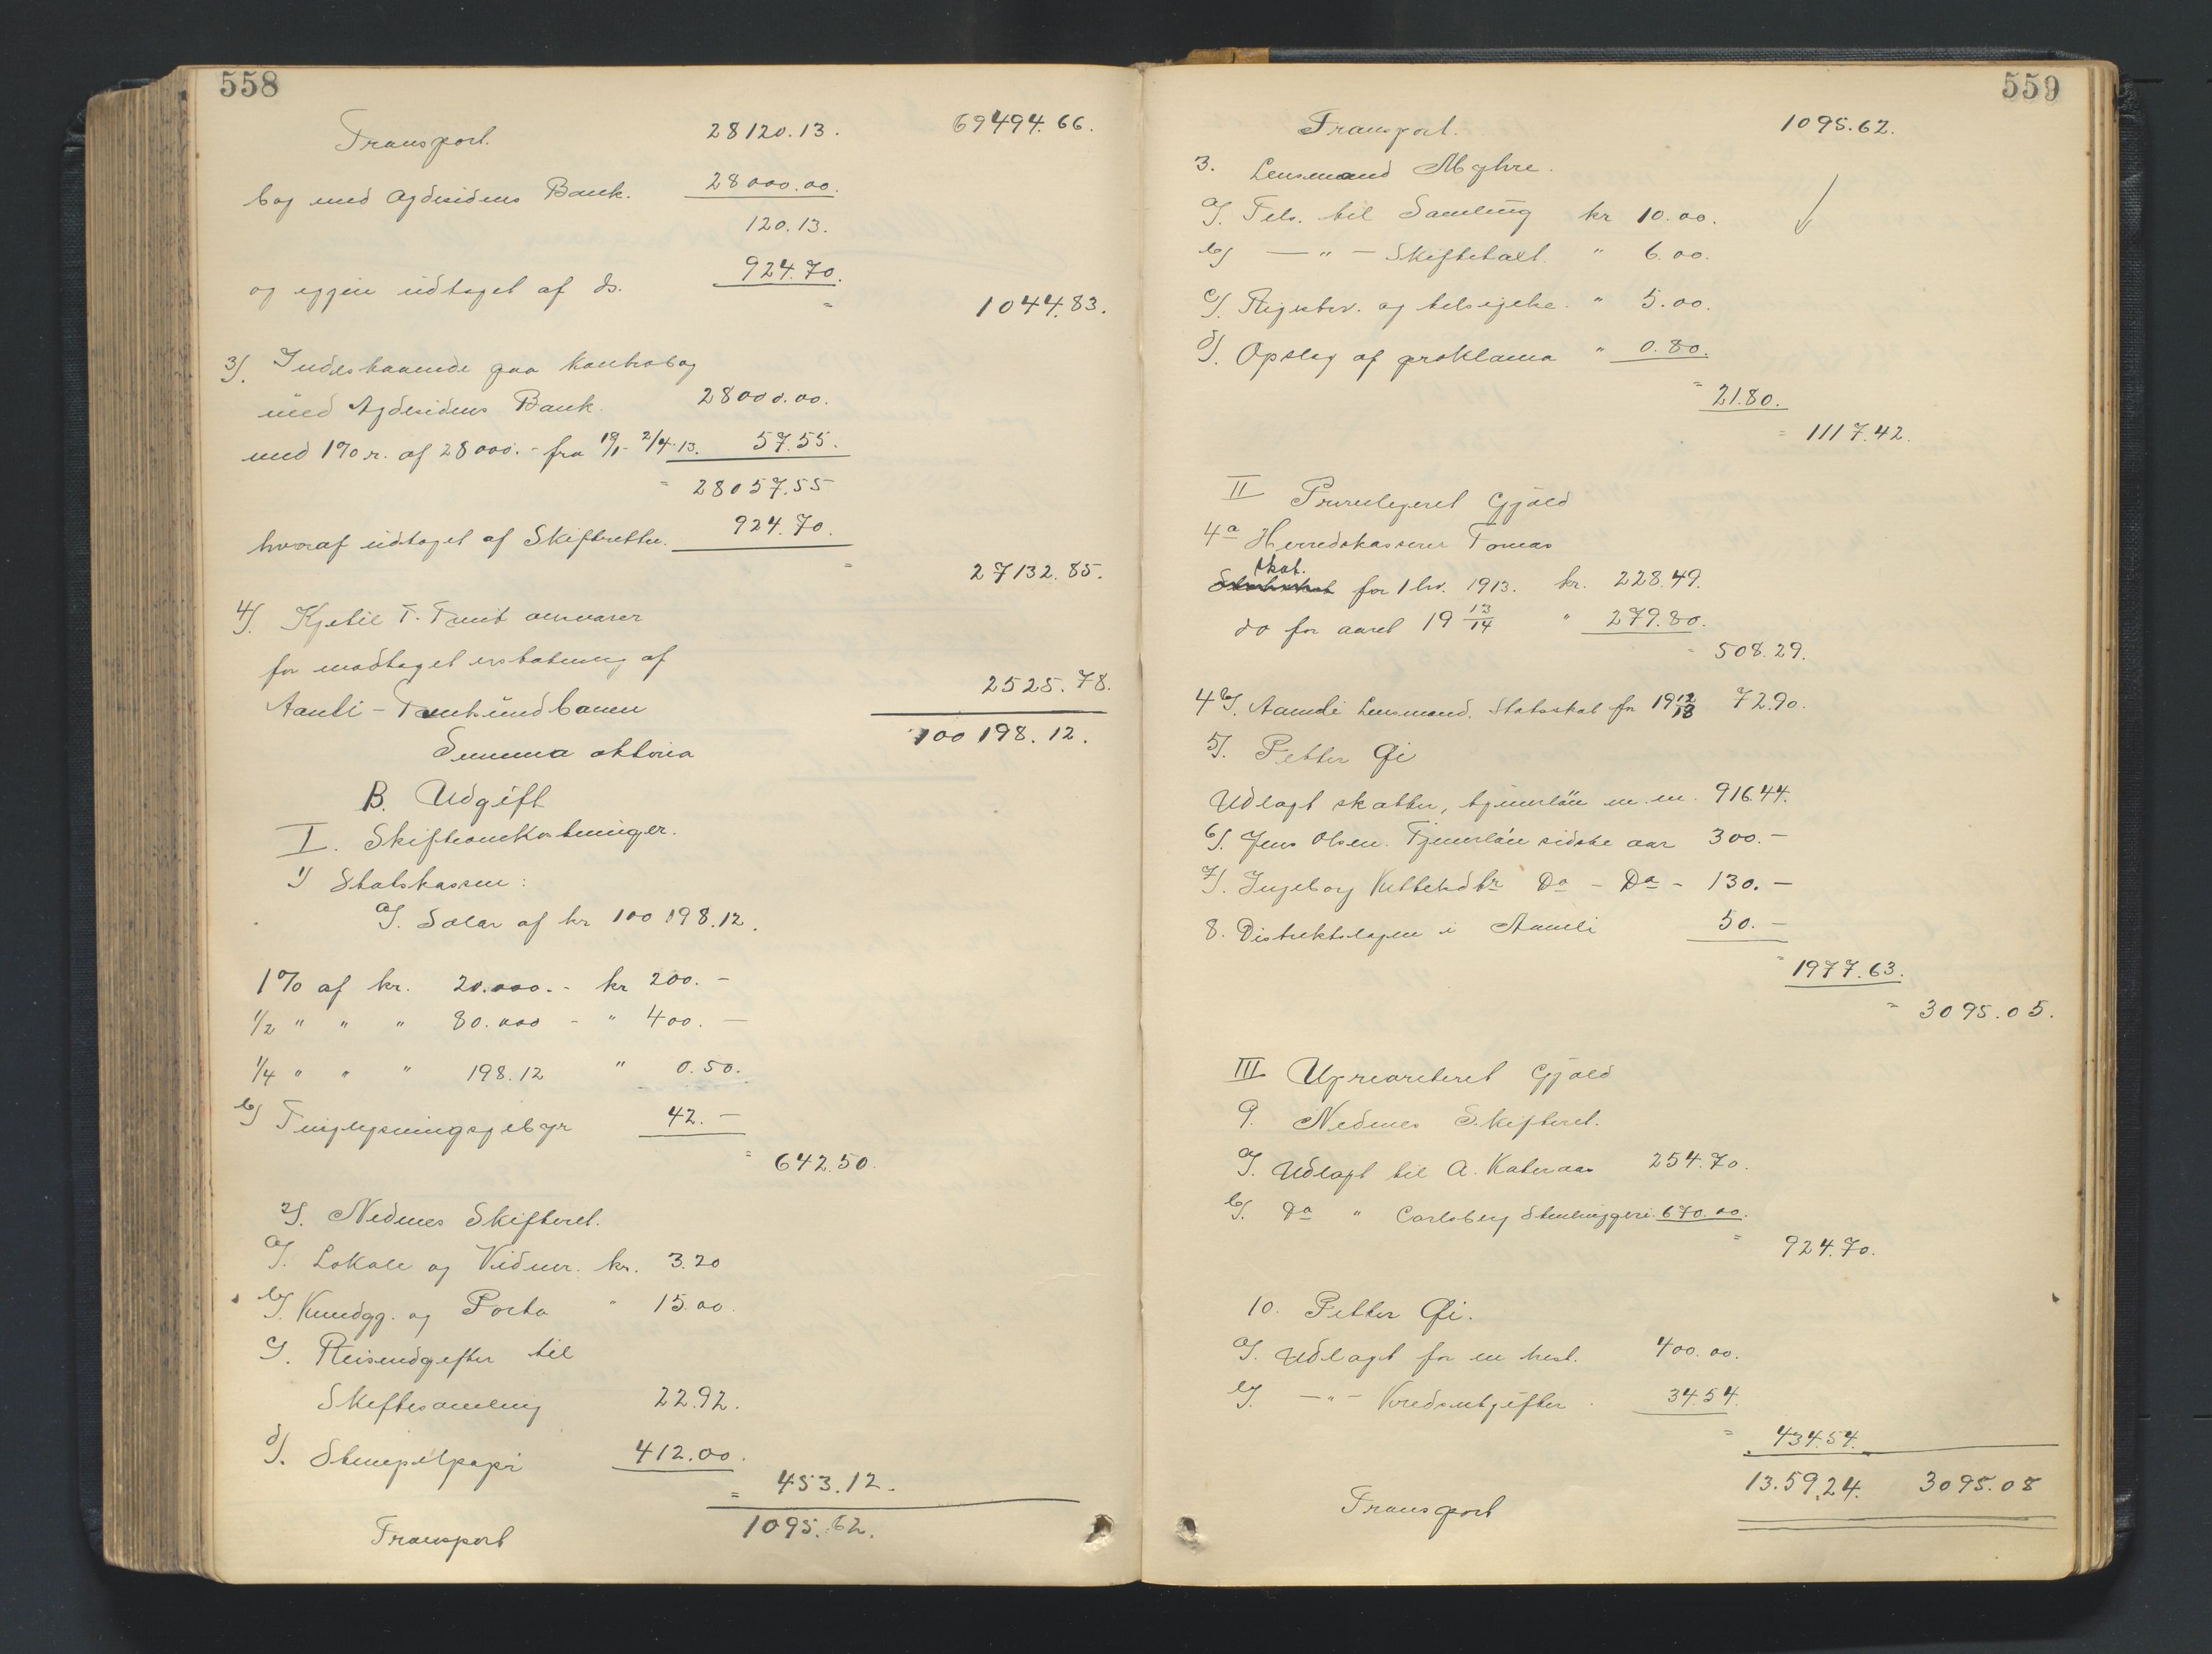 558
Transport. 28120.13. 69494.66.
bog med Agdesidens Bank. 28000.00.
120.13.
og igjen udtaget af ds. 924.70.
" 1044.83.
3/. Indestaaende paa Kontrabog
med Agdesidens Bank. 28000.00.
med 1% r. af 28000.- fra 19/1- 2/4 13. 57.55.
= 28057.55
hvoraf udtaget af Skifteretten. 924.70.
= 27132.85.
4/. Kjetil T. Tveit ansvarer
for modtaget erstatning af
Aamli-Tveitsundbanen 2525.78.
Summa aktiva 100198.12.
B. Udgift
I. Skifteomkostninger.
1/ Statskassen:
a/. Salar af kr 100198.12.
1% af kr. 20.000.- kr 200.-
1/2 " " " 80.000 - " 400.-
1/4 " " " 198.12 " 0.50.
b/ Tinglysningsgebyr 42.-
= 642.50.
2/. Nedenes Skifteret.
a/. Lokale og Vidner. kr. 3.20
b/. Kundgj. og Porto " 15.00.
c/. Reiseudgifter til
Skiftesamling 22.92.
d/. Stempelpapir 412.00.
= 453.12.
Transport 1095.62.
559
Transport. 1095.62.
3. Lensmand Myhre.
a/. Tels. til Samling kr 10.00.
b/ - " - Skiftetakt. " 6.00.
c/. Registr. og tilsigelse. " 5.00.
d/. Opslag af proklama " 0.80.
= 21.80.
= 1117.42.
II Privilegeret Gjæld
4a Herredskasserer Tomas
skat.
for 1 hv. 1913. kr. 228.49.
do for aaret 19 13/14 " 279.80.
508.29.
4b/. Aamli Lensmand. Statsskat for 19 12/13 72.90.
5/. Petter Øi
Udlagt skatter, tjenerløn m.m. 916.44.
6/. Jens Olsen. Tjenerløn sidste aar 300.-
7/. Ingeborg Do - Do - 130.-
8. Distriktslægen i Aamli 50.-
= 1977.63.
= 3095.05.
III Uprioriteret Gjæld
9. Nedenes Skifteret.
a/. Udlagt til A. Kateraas 254.70.
b/. Do " Carlsberg Stenhuggeri 670.00.
= 924.70.
10. Petter Øi.
a/. Udlagt for en hest. 400.00.
b/. - " - 34.54.
= 434.54.
Transport 13.59.24. 3095.08